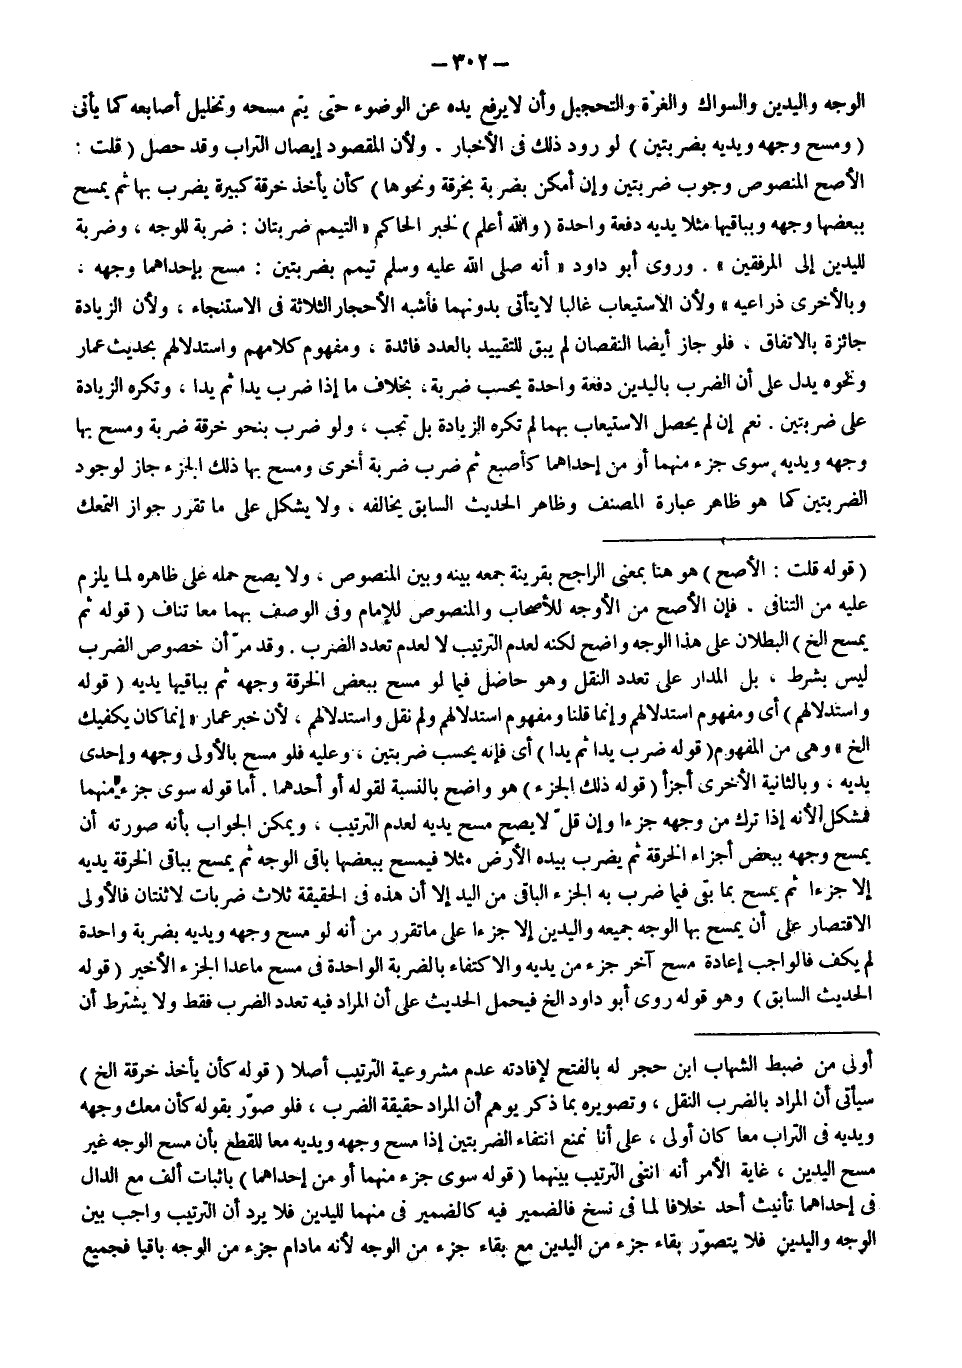 — ٣٠٢ —
الوجه واليدين والسواك والغرّة والتحجيل وأن لايرفع يده عن الوضوء حتى يتم مسحه وتخليل أصابعه كما يأتى
( ومسح وجهه ويديه بضربتين ) لو رود ذلك فى الأخبار . ولأن المقصود إيصال التراب وقد حصل ( قلت :
الأصح المنصوص وجوب ضربتين وإن أمكن بضربة بخرقة ونحوها ) كأن يأخذ خرقة كبيرة يضرب بها ثم يمسح
ببعضها وجهه وبباقيها مثلا يديه دفعة واحدة ( والله أعلم ) لخبر الحاكم « التيمم ضربتان : ضربة للوجه ، وضربة
لليدين إلى المرفقين » . وروى أبو داود « أنه صلى الله عليه وسلم تيمم بضربتين : مسح بإحداهما وجهه ،
وبالأخرى ذراعيه » ولأن الاستيعاب غالبا لايتأتى بدونهما فأشبه الأحجار الثلاثة فى الاستنجاء ، ولأن الزيادة
جائزة بالاتفاق ، فلو جاز أيضا النقصان لم يبق للتقييد بالعدد فائدة ، ومفهوم كلامهم واستدلالهم بحديث عمار
ونحوه يدل على أن الضرب باليدين دفعة واحدة يحسب ضربة ، بخلاف ما إذا ضرب يدا ثم يدا ، وتكره الزيادة
على ضربتين . نعم إن لم يحصل الاستيعاب بهما لم تكره الزيادة بل تجب ، ولو ضرب بنحو خرقة ضربة ومسح بها
وجهه ويديه سوى جزء منهما أو من إحداهما كأصبع ثم ضرب ضربة أخرى ومسح بها ذلك الجزء جاز لوجود
الضربتين كما هو ظاهر عبارة المصنف وظاهر الحديث السابق يخالفه ، ولا يشكل على ما تقرر جواز التمعك
( قوله قلت : الأصح ) هو هنا بمعنى الراجح بقرينة جمعه بينه وبين المنصوص ، ولا يصح حمله على ظاهره لما يلزم
عليه من التنافى . فإن الأصح من الأوجه للأصحاب والمنصوص للإمام وفى الوصف بهما معا تناف ( قوله ثم
يمسح الخ ) البطلان على هذا الوجه واضح لكنه لعدم الترتيب لا لعدم تعدد الضرب . وقد مرّ أن خصوص الضرب
ليس بشرط ، بل المدار على تعدد النقل وهو حاضل فيما لو مسح ببعض الخرقة وجهه ثم بباقيها يديه ( قوله
واستدلالهم ) أى ومفهوم استدلالهم وإنما قلنا ومفهوم استدلالهم ولم نقل واستدلالهم ، لأن خبر عمار « إنما كان يكفيك
الخ » وهى من المفهوم( قوله ضرب يدا ثم يدا ) أى فإنه يحسب ضربتين ، وعليه فلو مسح بالأولى وجهه وإحدى
يديه ، وبالثانية الأخرى أجزأ ( قوله ذلك الجزء ) هو واضح بالنسبة لقوله أو أحدهما . أما قوله سوى جزء منهما
فمشكل لأنه إذا ترك من وجهه جزءا وإن قلّ لايصح مسح يديه لعدم الترتيب ، ويمكن الجواب بأنه صورته أن
يمسح وجهه ببعض أجزاء الخرقة ثم يضرب بيده الأرض مثلا فيمسح ببعضها باقى الوجه ثم يمسح بباقى الخرقة يديه
إلا جزءا ثم يمسح بما بقى فيما ضرب به الجزء الباقى من اليد إلا أن هذه فى الحقيقة ثلاث ضربات لا ثنتان فالأولى
الاقتصار على أن يمسح بها الوجه جميعه واليدين إلا جزءا على ماتقرر من أنه لو مسح وجهه ويديه بضربة واحدة
لم يكف فالواجب إعادة مسح آخر جزء من يديه والاكتفاء بالضربة الواحدة فى مسح ماعدا الجزء الأخير ( قوله
الحديث السابق ) وهو قوله روى أبو داود الخ فيحمل الحديث على أن المراد فيه تعدد الضرب فقط ولا يشترط أن
أولى من ضبط الشهاب ابن حجر له بالفتح لإفادته عدم مشروعية الترتيب أصلا ( قوله كأن يأخذ خرقة الخ )
سيأتى أن المراد بالضرب النقل ، وتصويره بما ذكر يوهم أن المراد حقيقة الضرب ، فلو صوّر بقوله كأن معك وجهه
ويديه فى التراب معا كان أولى ، على أنا نمنع انتفاء الضربتين إذا مسح وجهه ويديه معا للقطع بأن مسح الوجه غير
مسح اليدين ، غاية الأمر أنه انتفى الترتيب بينهما ( قوله سوى جزء منهما أو من إحداهما ) باثبات ألف مع الدال
فى إحداهما تأنيث أحد خلافا لما فى نسخ فالضمير فيه كالضمير فى منهما لليدين فلا يرد أن الترتيب واجب بين
الوجه واليدين فلا يتصوّر بقاء جزء من اليدين مع بقاء جزء من الوجه لأنه مادام جزء من الوجه باقيا فجميع